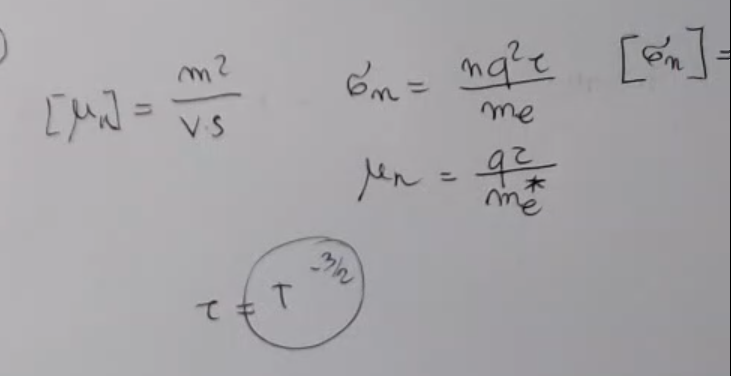 ) [μn] = m²/V·S   σn = nq²τ/me   [σn] =
μn = qτ/me*
τ = T^-3/2